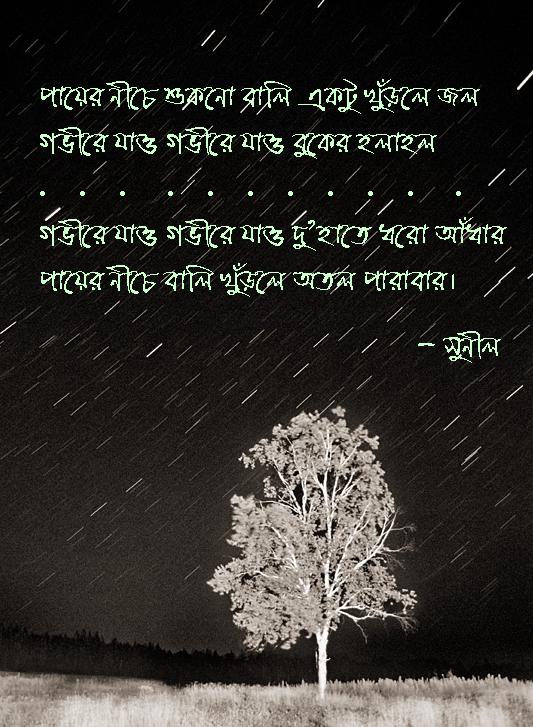 পায়ের নীচে শুকনো বালি একটু খুঁড়লে জল
গভীরে যাও গভীরে যাও বুকের হলাহল
. . . . . . . . . . .
গভীরে যাও গভীরে যাও দু'হাতে ধরো আঁধার
পায়ের নীচে বালি খুঁড়লে অতল পারাবার।
- সুনীল